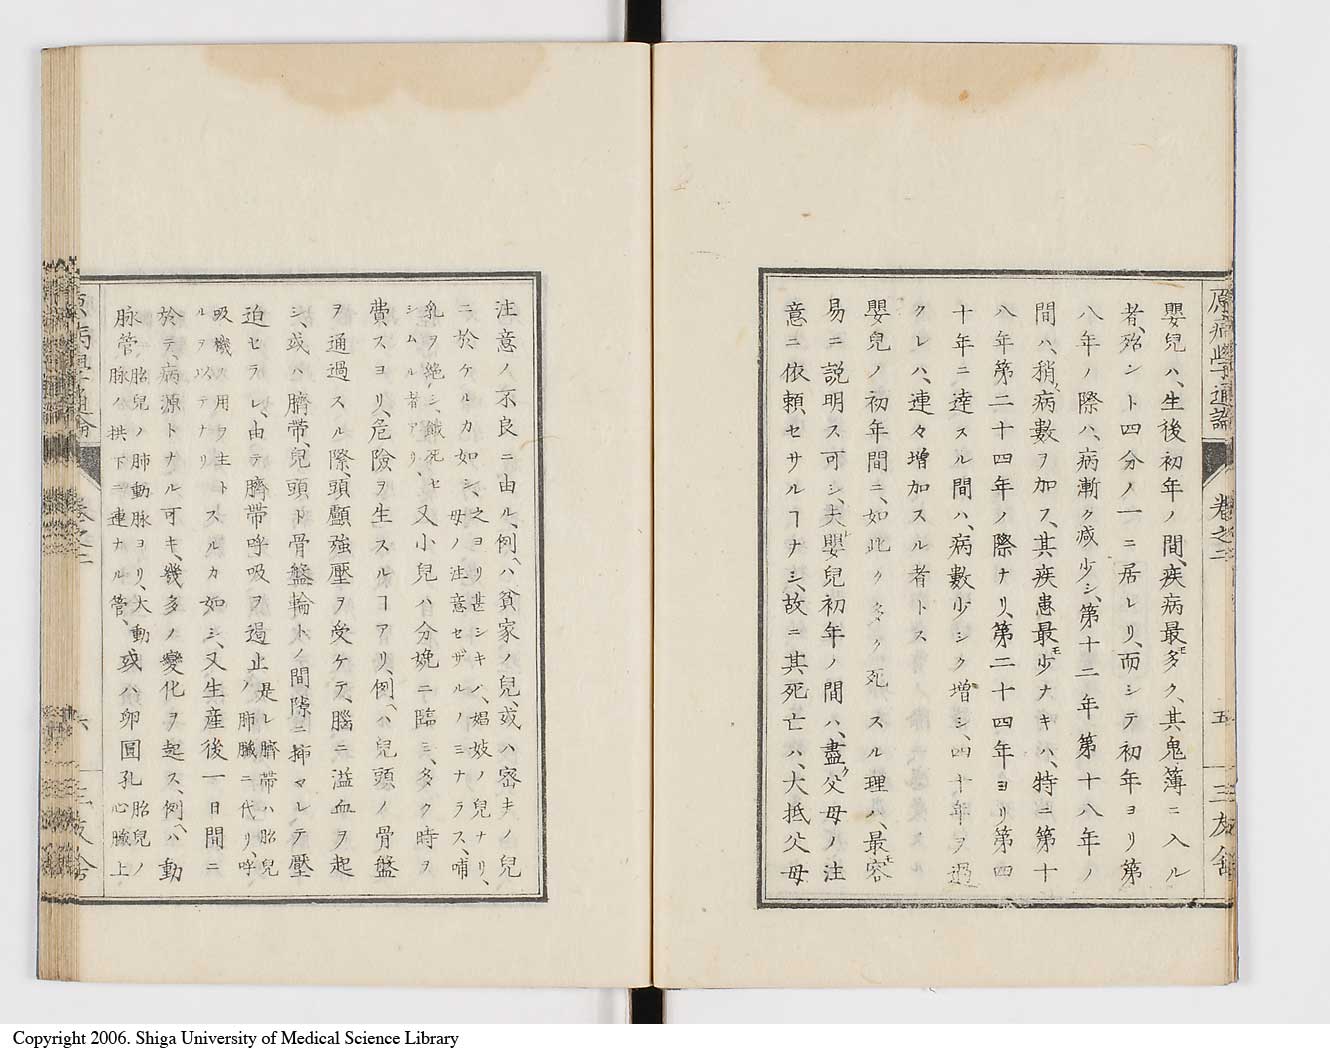 原病學通論
卷之二
五
三友舍
嬰兒ハ、生後初年ノ間、疾病最モ多ク、其鬼簿ニ入ル
者、殆ント四分ノ一ニ居レリ、而シテ初年ヨリ第
八年ノ際ハ、病漸ク减少シ、第十二年第十八年ノ
間ハ、稍〻病數ヲ加フ、其疾患最モ少ナキハ、特ニ第十
八年第二十四年ノ際ナリ、第二十四年ヨリ第四
十年ニ達スル間ハ、病數少シク增シ、四十年ヲ過
クレハ、連々增加スル者トス
嬰兒ノ初年間ニ、如此ク多ク死スル理ハ、最モ容
易ニ説明ス可シ、夫レ嬰兒初年ノ間ハ、盡ク父母ノ注
意ニ依頼セサルヿナシ、故ニ其死亡ハ、大抵父母
注意ノ不良ニ由ル、例ヘハ貧家ノ兒、或ハ密夫ノ兒
ニ於ケルカ如シ、之ヨリ甚シキハ、娼妓ノ兒ナリ、
母ノ注意セザルノミナラス、哺
乳ヲ絶シ、餓死セ
シムル者アリ、
又小兒ハ分娩ニ臨ミ、多ク時ヲ
費スヨリ、危險ヲ生スルヿアリ、例ヘハ兒頭ノ骨盤
ヲ通過スル際、頭顱強壓ヲ受ケテ、腦ニ溢血ヲ起
シ、或ハ臍帶、兒頭ト骨盤輪トノ間隙ニ挿マレテ壓
迫セラレ、由テ臍帶呼吸ヲ遏止ノ
是レ臍帶ハ胎兒
肺臓ニ代リ、呼
吸機ノ用ヲ生ト
ルヲ以テナリ
スルカ如シ、又生産後一日間ニ
於テ、病源トナル可キ、幾多ノ變化ヲ起ス、例ヘハ動
脉管
胎兒ノ肺動脉ヨリ、大動
脉ノ拱下ニ連ナル管、
或ハ卵圓孔
胎兒ノ
心臓上
原病學通論
卷之二
六
三友舍
Copyright 2006. Shiga University of Medical Science Library